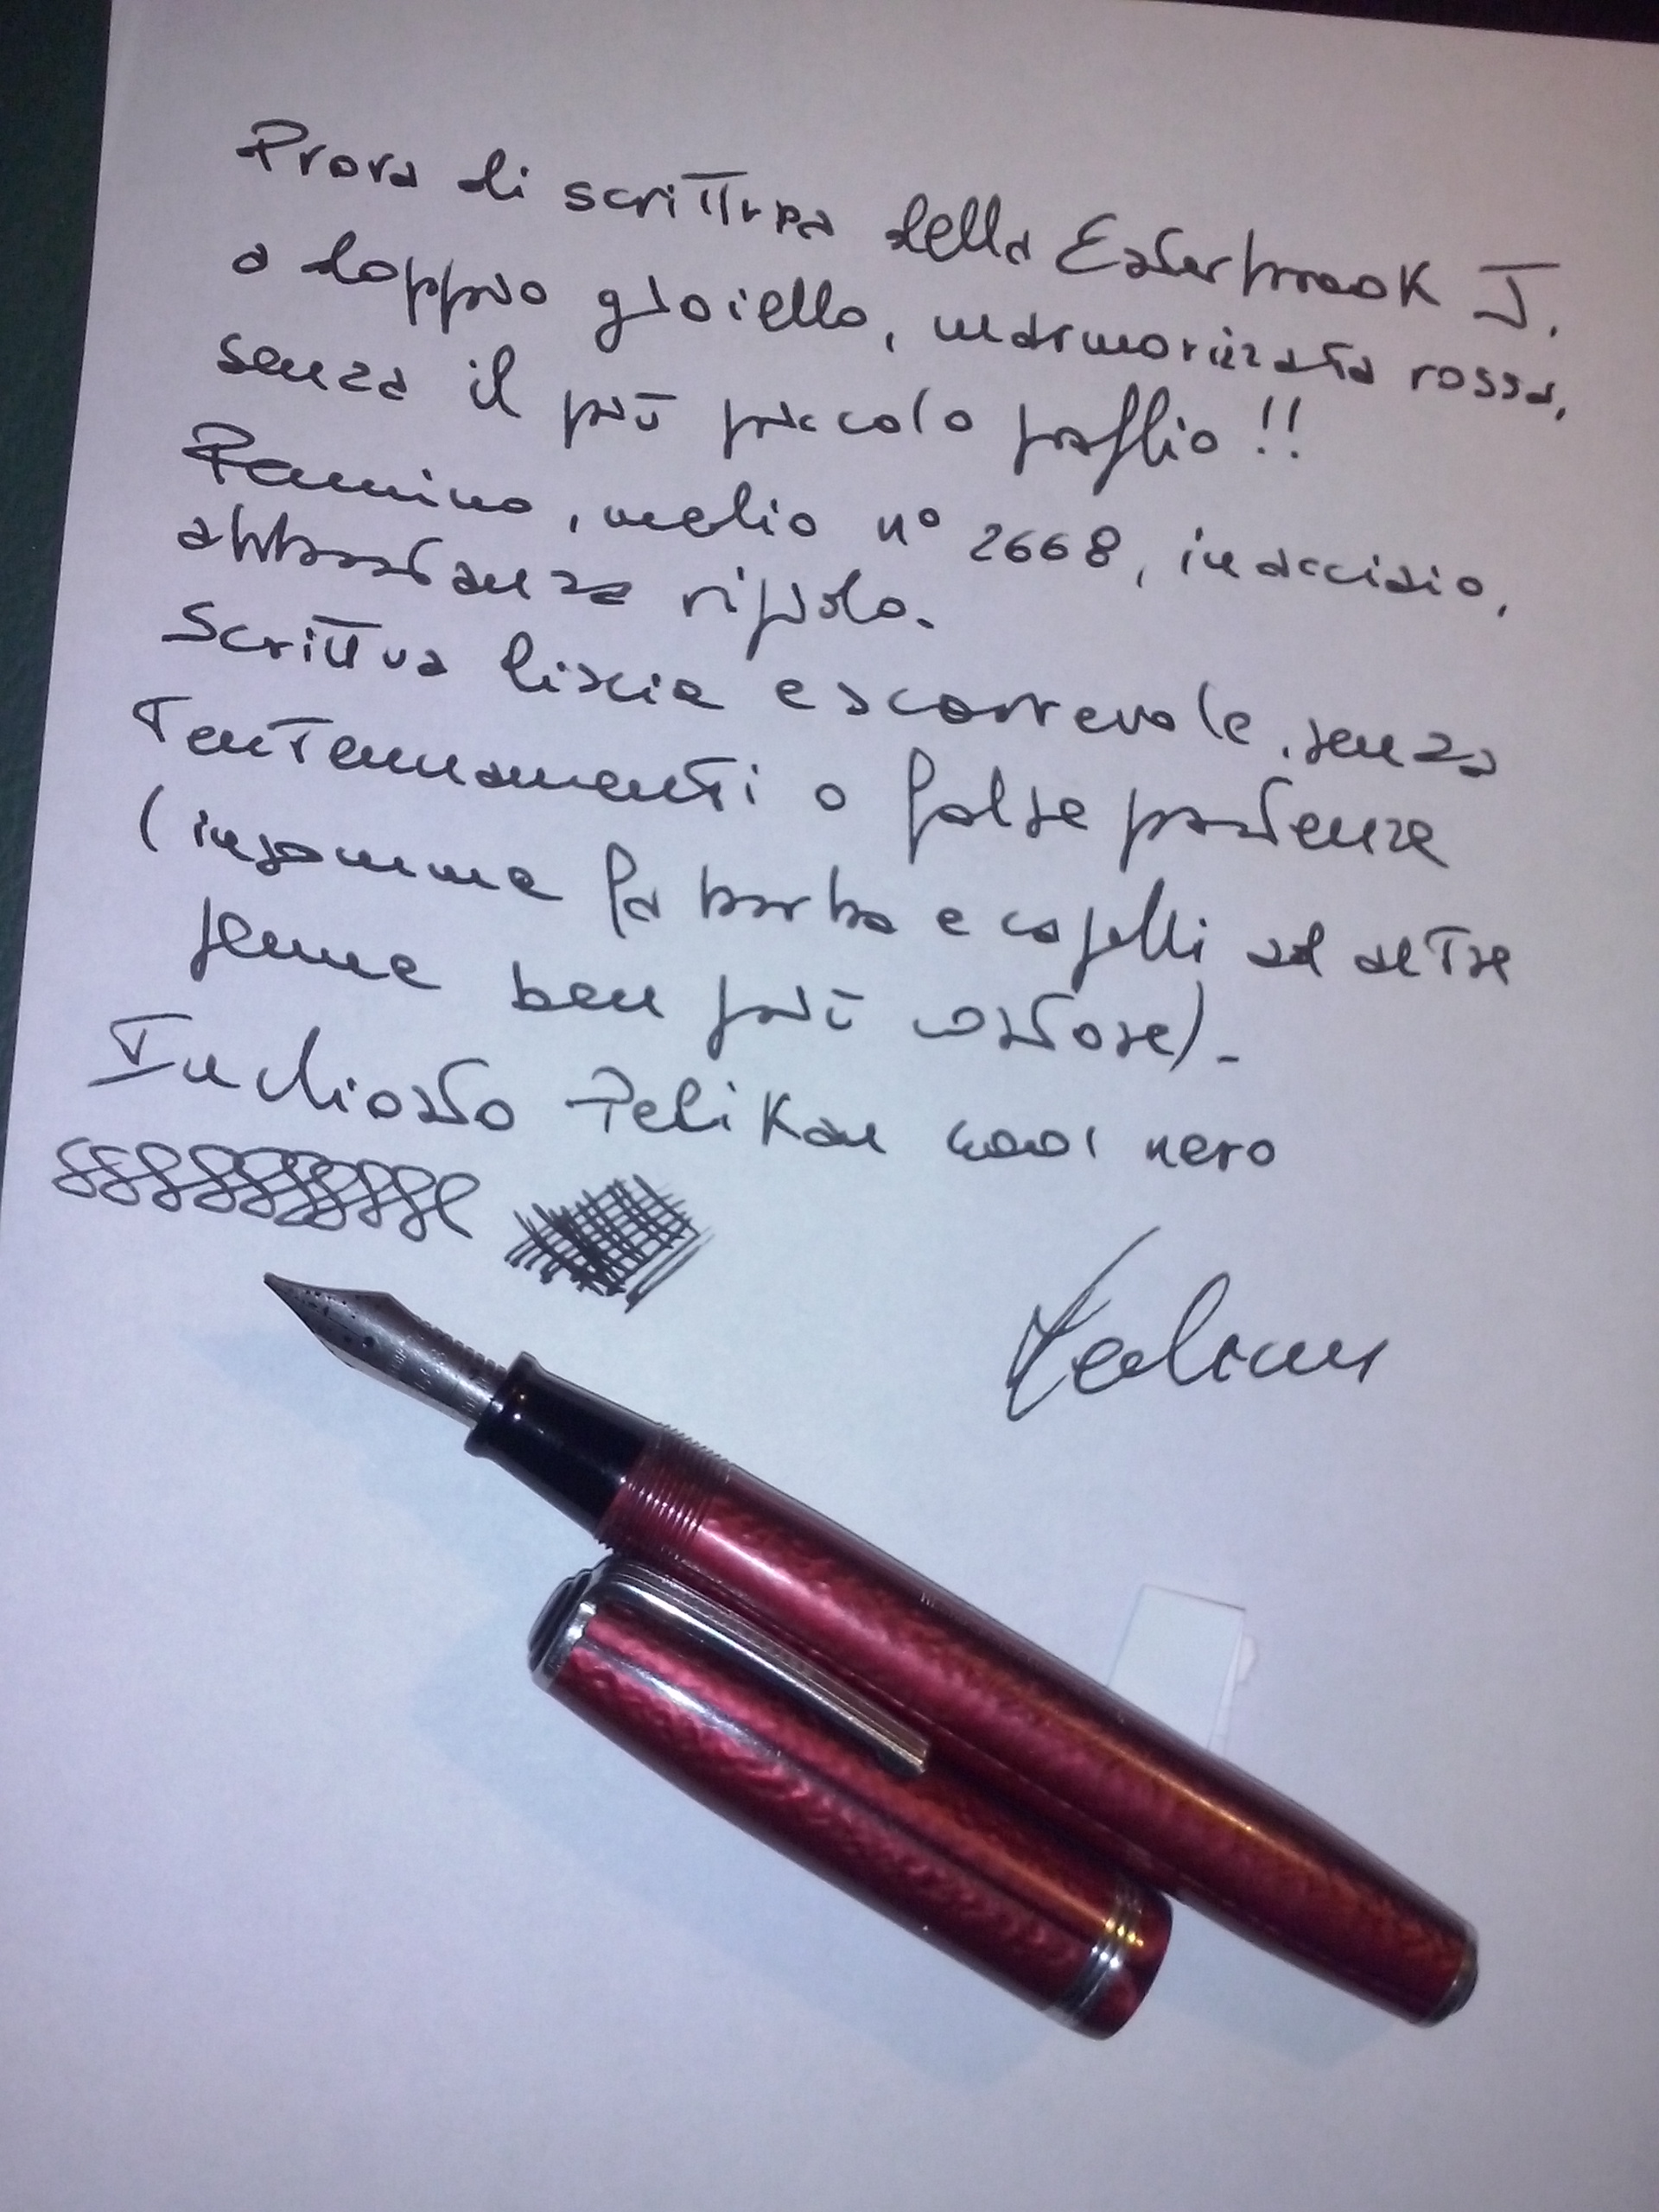 Prova di scrittura della Esterbrook J.
a doppio gioiello, marmorizzata rossa,
senza il più piccolo graffio!!
Pennino, medio n° 2668, in acciaio,
abbastanza rigido.
Scrittura liscia e scorrevole, senza
Tentennamenti o false partenze
(insomma fa barba e capelli ad altre
penne ben più costose).
Inchiostro Pelikan 4001 nero